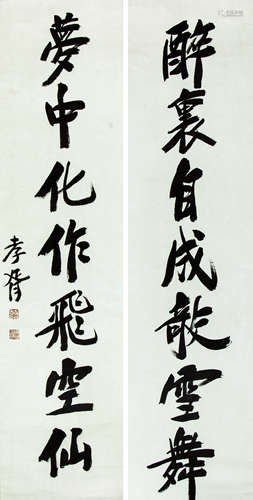 醉裏自成散雪舞
夢中化作飛空仙
孝胥